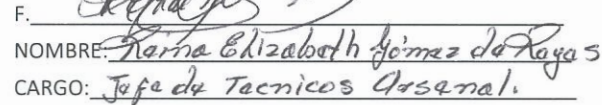 F.
NOMBRE: Reina Elizabeth Gómez de Rayas
CARGO: Jefe de Tecnicos Arsenal.